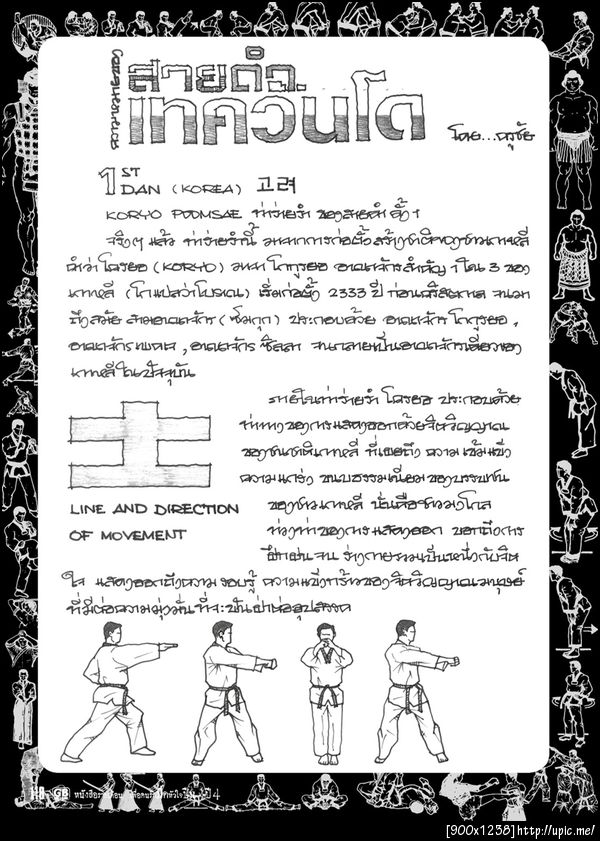 สายดำ
เทควันโด
โดย...ครูชัย
1ST DAN (KOREA) 고려
KORYO POOMSAE ท่าร่ายรำ ของสายดำ ขั้น 1
จริงๆ แล้ว ท่าร่ายรำนี้ มาจากการก่อตั้งสร้างชาติของชาวเกาหลี
คำว่าโครยอ (KORYO) มาจาก โกกูรยอ อาณาจักรสำคัญ 1 ใน 3 ของ
เกาหลี (โกแปลว่าโบราณ) เริ่มก่อตั้ง 2333 ปี ก่อนคริสตกาล จนมา
ถึงสมัย สามอาณาจักร (ซัมกุก) ประกอบด้วย อาณาจักรโกกูรยอ,
อาณาจักรแพคเจ, อาณาจักร ซิลลา จนกลายเป็นอาณาจักรเดียวของ
เกาหลีในปัจจุบัน
ภายในท่าร่ายรำ โครยอ ประกอบด้วย
ท่าทางของการแสดงออกด้วยจิตวิญญาณ
ของชนชาติเกาหลี ที่เผยถึง ความเข้มแข็ง
ความแกร่ง ขนบธรรมเนียมของบรรพชน
LINE AND DIRECTION
OF MOVEMENT
ของชาวเกาหลี นั่นคือชาวมองโกล
ท่วงท่าของการแสดงออก บอกถึงการ
ฝึกฝนจน ร่างกายรวมเป็นหนึ่งกับจิต
ใจ แสดงออกถึงความรอบรู้ ความแข็งกร้าวของจิตวิญญาณมนุษย์
ที่มีต่อความมุ่งมั่นที่จะฟันฝ่าต่ออุปสรรค
[900x1238]http://upic.me/